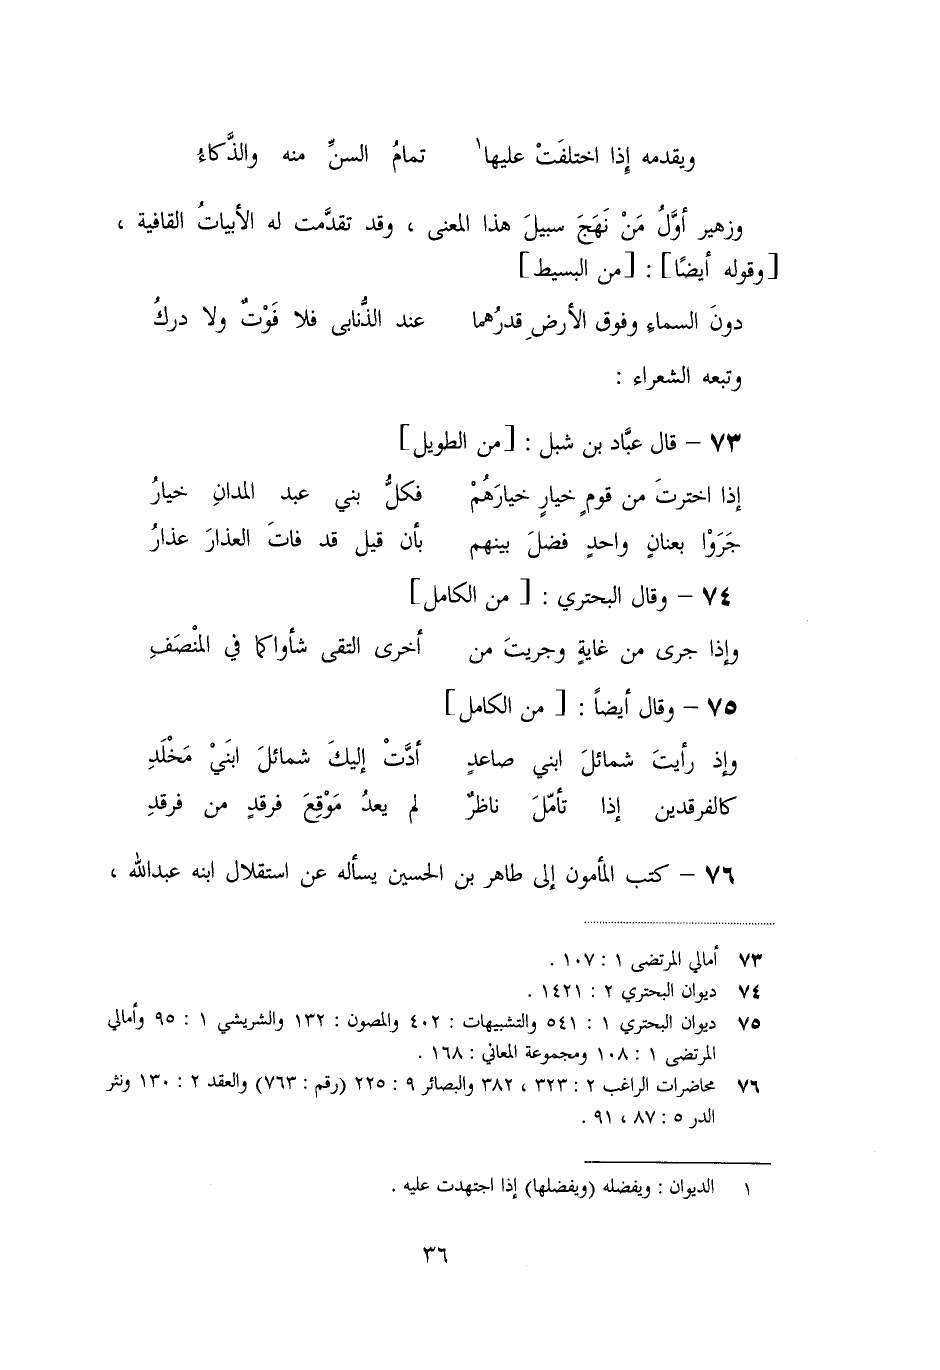 ويقدمه إِذا اختلفَتْ عليها١ تمامُ السنِّ منه والذَّكاءُ
وزهير أوَّلُ مَنْ نَهَجَ سبيلَ هذا المعنى ، وقد تقدَّمت له الأبياتُ القافية ،
[وقوله أيضًا] : [من البسيط]
دونَ السماءِ وفوق الأرضِ قدرُهما عند الذُّنابى فلا فَوْتٌ ولا دركُ
وتبعه الشعراء :
٧٣ – قال عبَّاد بن شبل : [من الطويل]
إذا اخترتَ من قومٍ خيارٍ خيارَهُمْ فكلُّ بني عبد المدانِ خيارُ
جَرَوْا بعنانٍ واحدٍ فضلَ بينهم بأن قيل قد فاتَ العذارَ عذارُ
٧٤ – وقال البحتري : [ من الكامل]
وإذا جرى من غايةٍ وجريتَ من أخرى التقى شأواكما في المنْصَفِ
٧٥ – وقال أيضاً : [ من الكامل]
وإذ رأيتَ شمائلَ ابني صاعدٍ أدَّتْ إليكَ شمائلَ ابنَيْ مَخْلَدِ
كالفرقدين إذا تأمّلَ ناظرٌ لم يعدُ مَوْقِعَ فرقدٍ من فرقدِ
٧٦ – كتب المأمون إلى طاهر بن الحسين يسأله عن استقلال ابنه عبدالله ،
٧٣ أمالي المرتضى ١ : ١٠٧ .
٧٤ ديوان البحتري ٢ : ١٤٢١ .
٧٥ ديوان البحتري ١ : ٥٤١ والتشبيهات : ٤٠٢ والمصون : ١٣٢ والشريشي ١ : ٩٥ وأمالي
المرتضى ١ : ١٠٨ ومجموعة المعاني : ١٦٨ .
٧٦ محاضرات الراغب ٢ : ٣٢٣ ، ٣٨٢ والبصائر ٩ : ٢٢٥ (رقم : ٧٦٣) والعقد ٢ : ١٣٠ ونثر
الدر ٥ : ٨٧ ، ٩١ .
١ الديوان : ويفضله (ويفضلها) إذا اجتهدت عليه .
٣٦